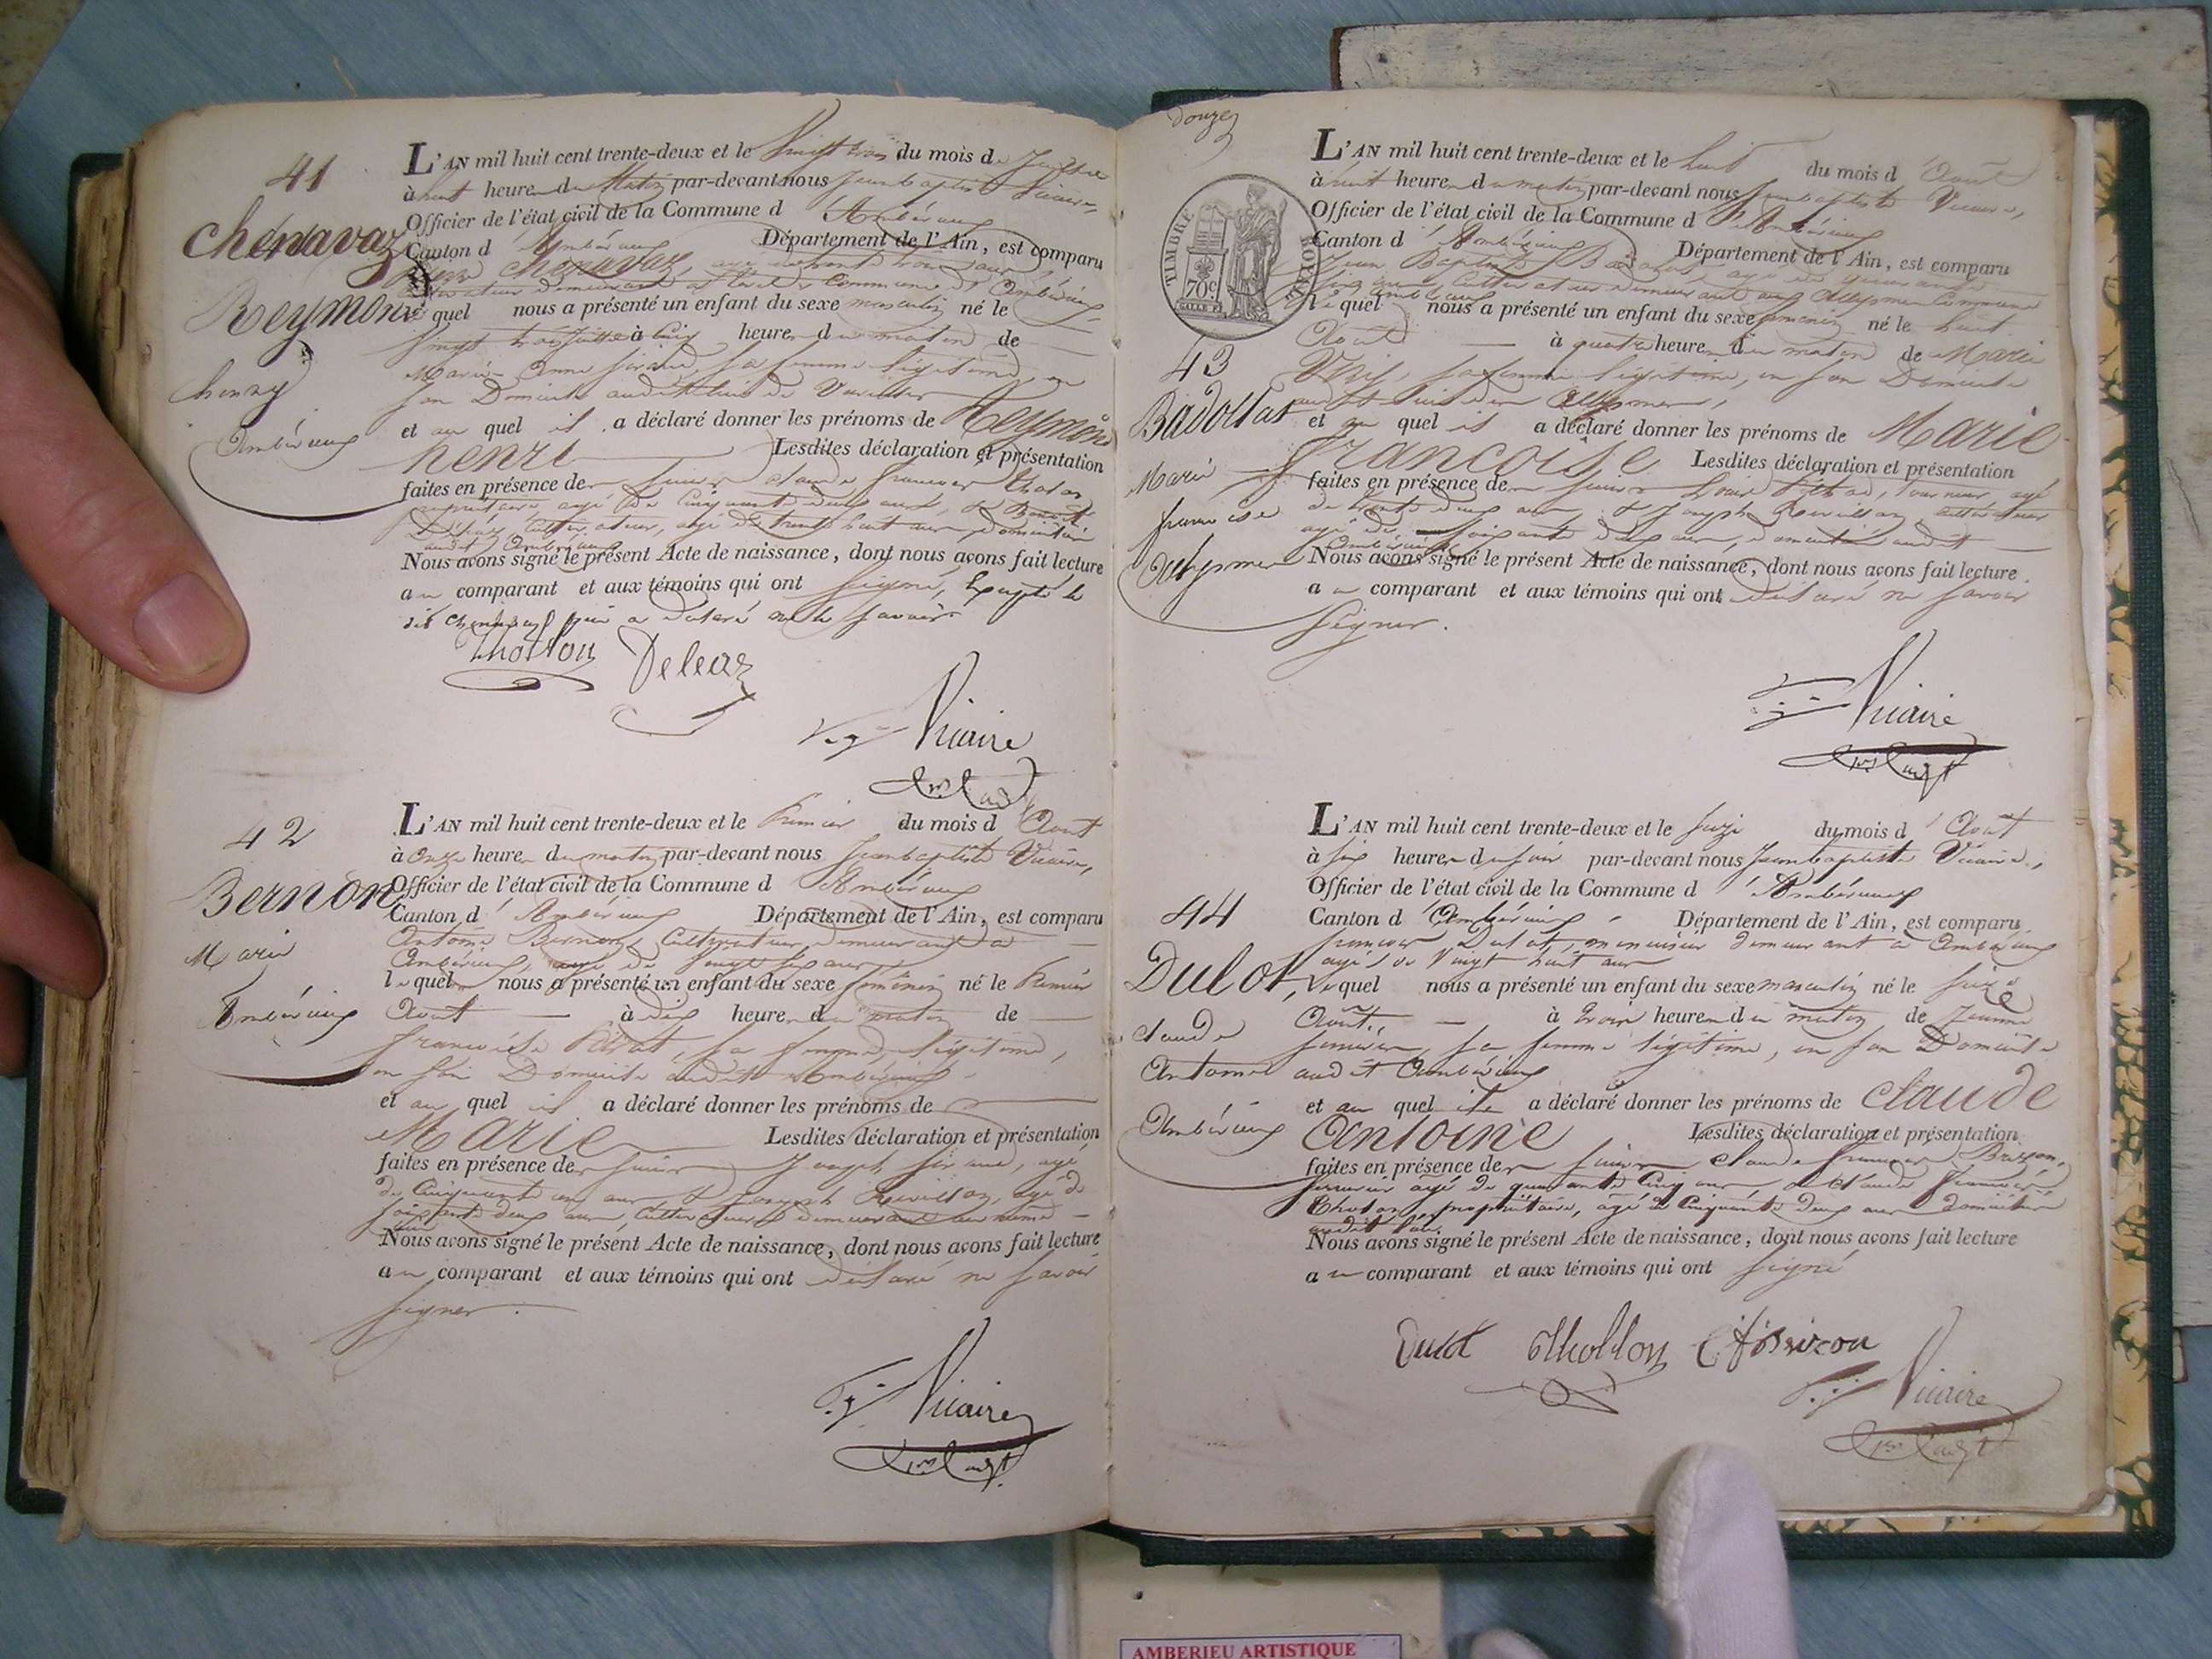 41
chenavaz
Reymond
henry
Ambérieux
L'AN mil huit cent trente-deux et le Vingt trois du mois de Juillet
à huit heures du Matin par-devant nous Jean baptiste Vicaire,
Officier de l'état civil de la Commune d'Ambérieux
Canton d'Ambérieux Département de l'Ain, est comparu
chenavaz, agé
cultivateur demeurant Commune d'Ambérieux
lequel nous a présenté un enfant du sexe masculin né le
Vingt trois Juillet à cinq heures du matin de
Marie-Anne sa femme légitime, en
son Domicile audit lieu de
et au quel il a déclaré donner les prénoms de Reymond
henri Lesdites déclaration et présentation
faites en présence de sieurs claude françois
propriétaire, agé de Cinquante deux ans, & Benoit
cultivateur, agé de trente huit ans, domiciliés
audit Ambérieux
Nous avons signé le présent Acte de naissance, dont nous avons fait lecture
au comparant et aux témoins qui ont signé, Excepté le
dit chenavaz qui a déclaré ne le savoir
Thollon
Vicaire
42
Bernon
Marie
Ambérieux
L'AN mil huit cent trente-deux et le Premier du mois d'Aout
à onze heures du matin par-devant nous Jean baptiste Vicaire,
Officier de l'état civil de la Commune d'Ambérieux
Canton d'Ambérieux Département de l'Ain, est comparu
Antoine Bernon, Cultivateur, demeurant à
Ambérieux, agé de Vingt ans
lequel nous a présenté un enfant du sexe féminin né le Premier
Aout à dix heures du matin de
françoise sa femme légitime,
en son Domicile audit Ambérieux
et au quel il a déclaré donner les prénoms de
Marie Lesdites déclaration et présentation
faites en présence de sieurs Joseph agé
de Cinquante un ans & Joseph Revillon, agé de
soixante deux ans, cultivateurs demeurant au même
lieu
Nous avons signé le présent Acte de naissance, dont nous avons fait lecture
au comparant et aux témoins qui ont déclaré ne savoir
signer.
Vicaire
douze
TIMBRE ROYAL
70c
43
Badollat
Marie
francoise
L'AN mil huit cent trente-deux et le huit du mois d'Aout
à huit heures du matin par-devant nous Jean baptiste Vicaire,
Officier de l'état civil de la Commune d'Ambérieux
Canton d'Ambérieux Département de l'Ain, est comparu
Jean Baptiste Badollat, agé de quarante
cultivateur demeurant aux Commune
d'Ambérieux
lequel nous a présenté un enfant du sexe féminin né le huit
Aout à quatre heures du matin de Marie
sa femme légitime, en son Domicile
audit lieu des
et au quel il a déclaré donner les prénoms de Marie
francoise Lesdites déclaration et présentation
faites en présence de sieurs Louis agé
de trente deux ans, & Joseph Revillon cultivateur
agé de soixante deux ans, domiciliés audit
Ambérieux
Nous avons signé le présent Acte de naissance, dont nous avons fait lecture
au comparant et aux témoins qui ont déclaré ne savoir
signer.
Vicaire
44
Dulot,
claude
Antoine
Ambérieux
L'AN mil huit cent trente-deux et le seize du mois d'Aout
à six heures du soir par-devant nous Jean baptiste Vicaire,
Officier de l'état civil de la Commune d'Ambérieux
Canton d'Ambérieux Département de l'Ain, est comparu
françois Dulot, menuisier demeurant à Ambérieux
agé de Vingt huit ans
lequel nous a présenté un enfant du sexe masculin né le seize
Aout, à trois heures du matin de Jeanne
sa femme légitime, en son Domicile
audit Ambérieux
et au quel il a déclaré donner les prénoms de claude
Antoine Lesdites déclaration et présentation
faites en présence de sieurs claude françois Brizon,
agé de quarante cinq ans, & Claude francois
propriétaire, agé de Cinquante deux ans domiciliés
audit lieu
Nous avons signé le présent Acte de naissance, dont nous avons fait lecture
au comparant et aux témoins qui ont signé
Dulot Thollon Brizon
Vicaire
AMBERIEU ARTISTIQUE